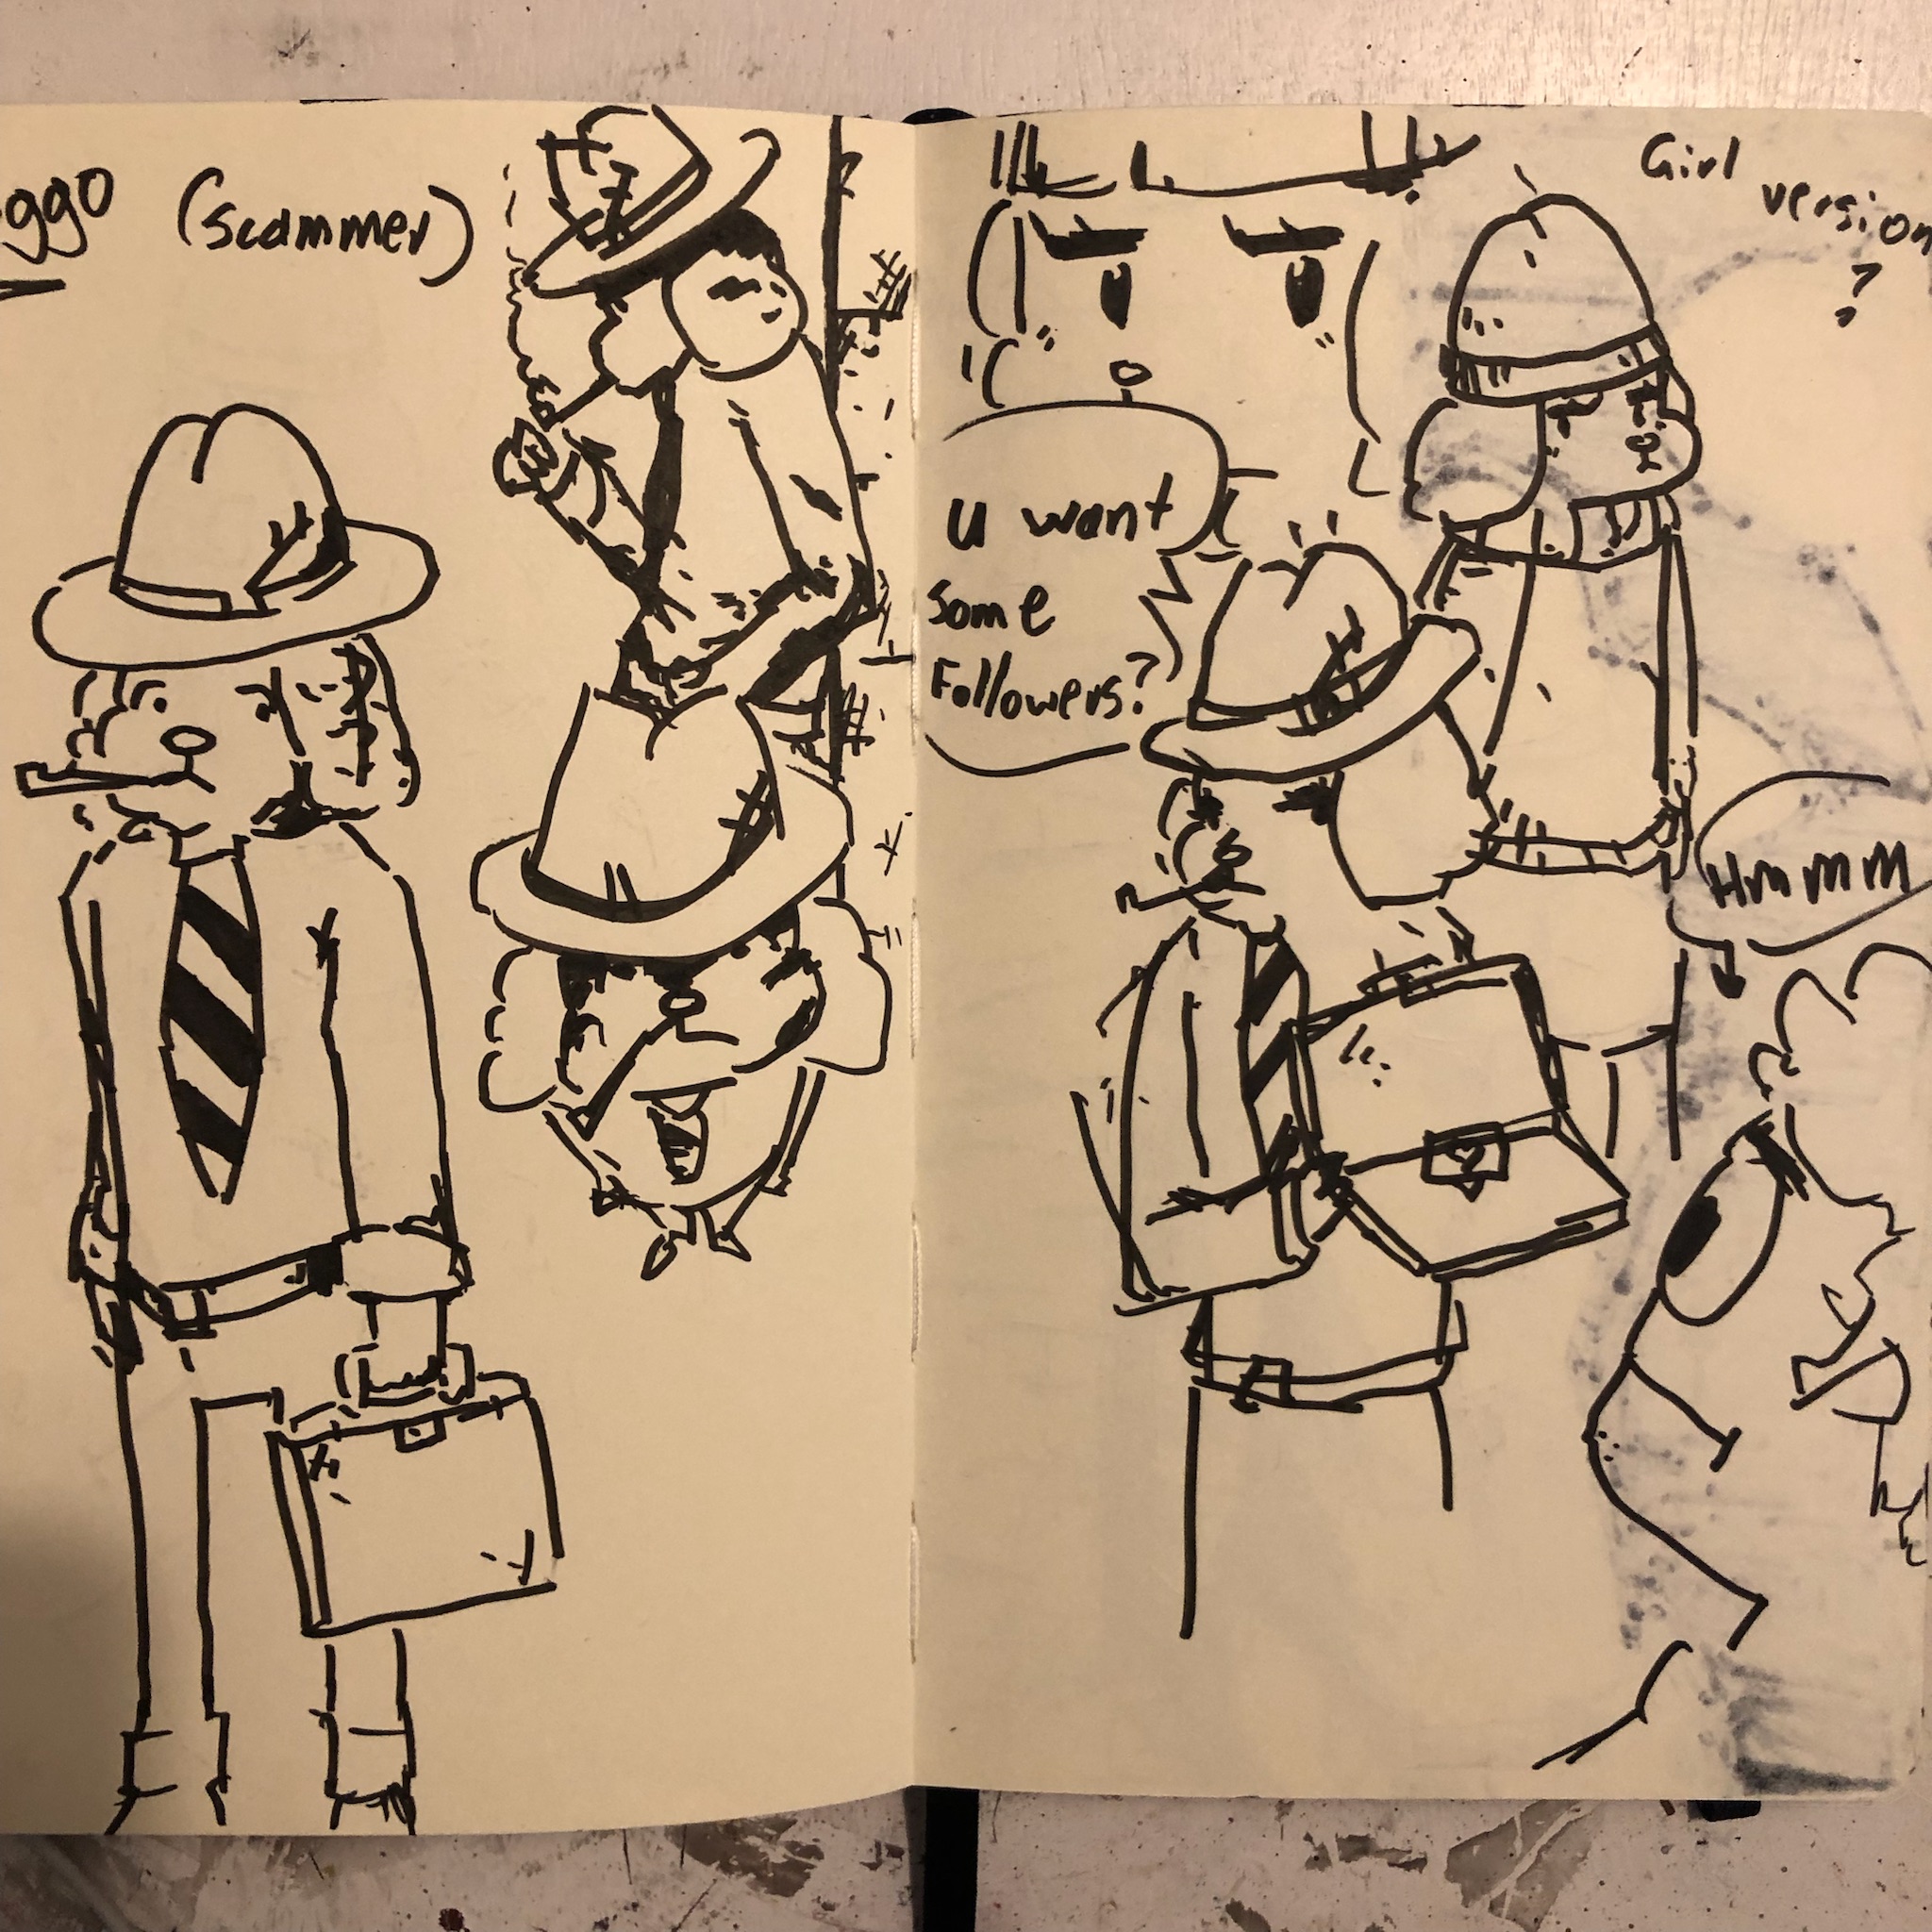 ggo (scammer)
Girl
version
?
u want
some
Followers?
Hmmmm